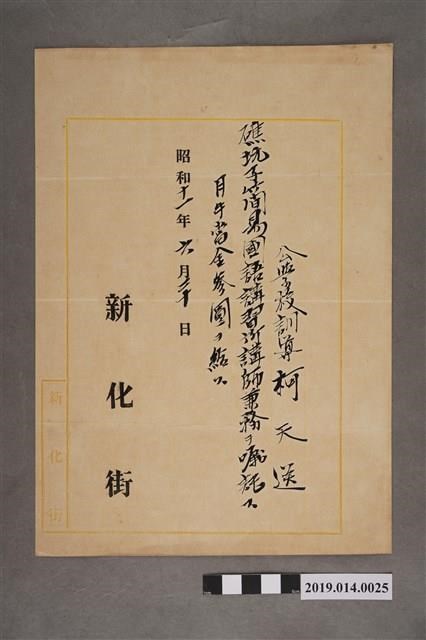 公學校訓導 柯天送
礁坑子簡易國語講習所講師兼務ヲ囑託ス
月手當金參圓ヲ給ス
昭和十一年六月三十日
新化街
新化街
2019.014.0025